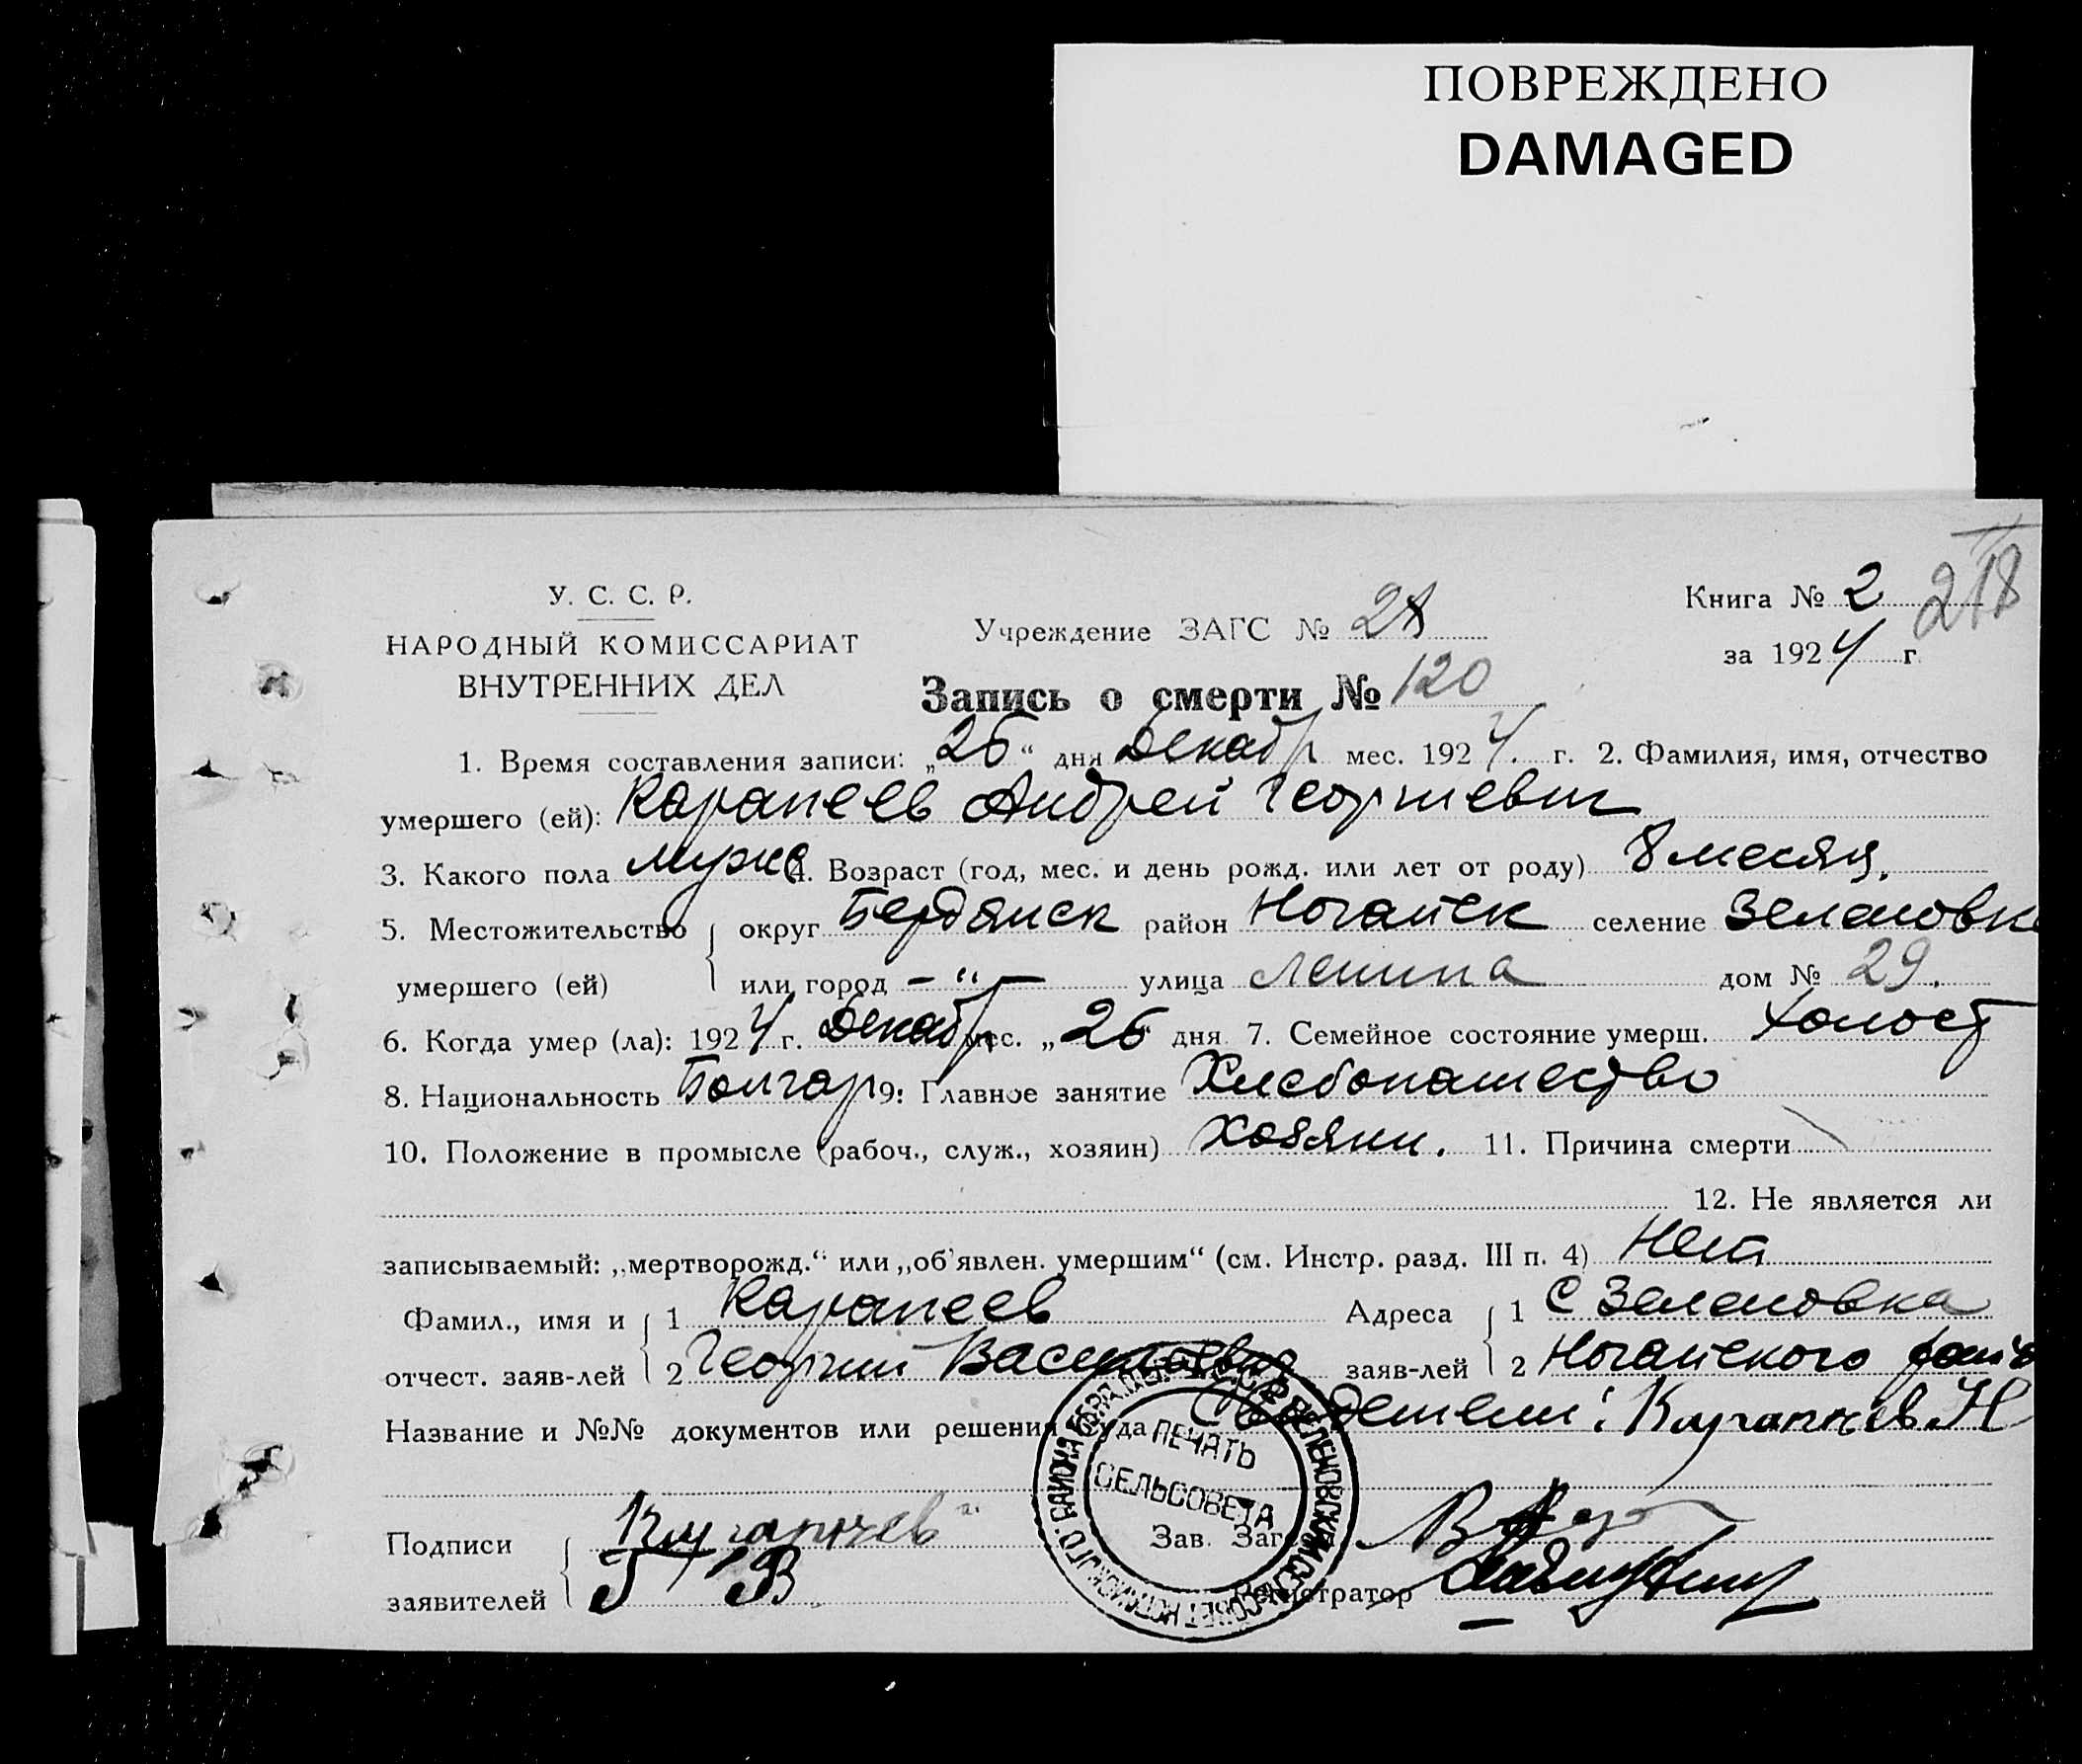 ПОВРЕЖДЕНО
DAMAGED
У. С. С. Р.
НАРОДНЫЙ КОМИССАРИАТ
ВНУТРЕННИХ ДЕЛ
Учреждение ЗАГС №
Книга № 2 218
за 1924 г.
Запись о смерти № 120
1. Время составления записи: „26“ дня Декабр мес. 1924 г. 2. Фамилия, имя, отчество
умершего (ей): Карапеев Андрей Георгиевич
3. Какого пола мужс 4. Возраст (год, мес. и день рожд. или лет от роду) 8 месяц.
5. Местожительство округ Бердянск район Ногайск селение Зеленовка
умершего (ей) или город - " - улица Ленина дом № 29.
6. Когда умер (ла): 1924 г. Декабр мес. „26“ дня 7. Семейное состояние умерш. Холост
8. Национальность Болгар 9: Главное занятие Хлебопашество
10. Положение в промысле (рабоч., служ., хозяин) Хозяин. 11. Причина смерти
12. Не является ли
записываемый: „мертворожд.“ или „об'явлен. умершим“ (см. Инстр. разд. III п. 4) Нет
Фамил., имя и 1 Карапеев Адреса 1 С Зеленовка
отчест. заяв-лей 2 Георгий Васильевич заяв-лей 2 Ногайского
Название и №№ документов или решения суда
ПЕЧАТЬ
СЕЛЬСОВЕТА
Подписи Зав. Загс
заявителей Г В Регистратор